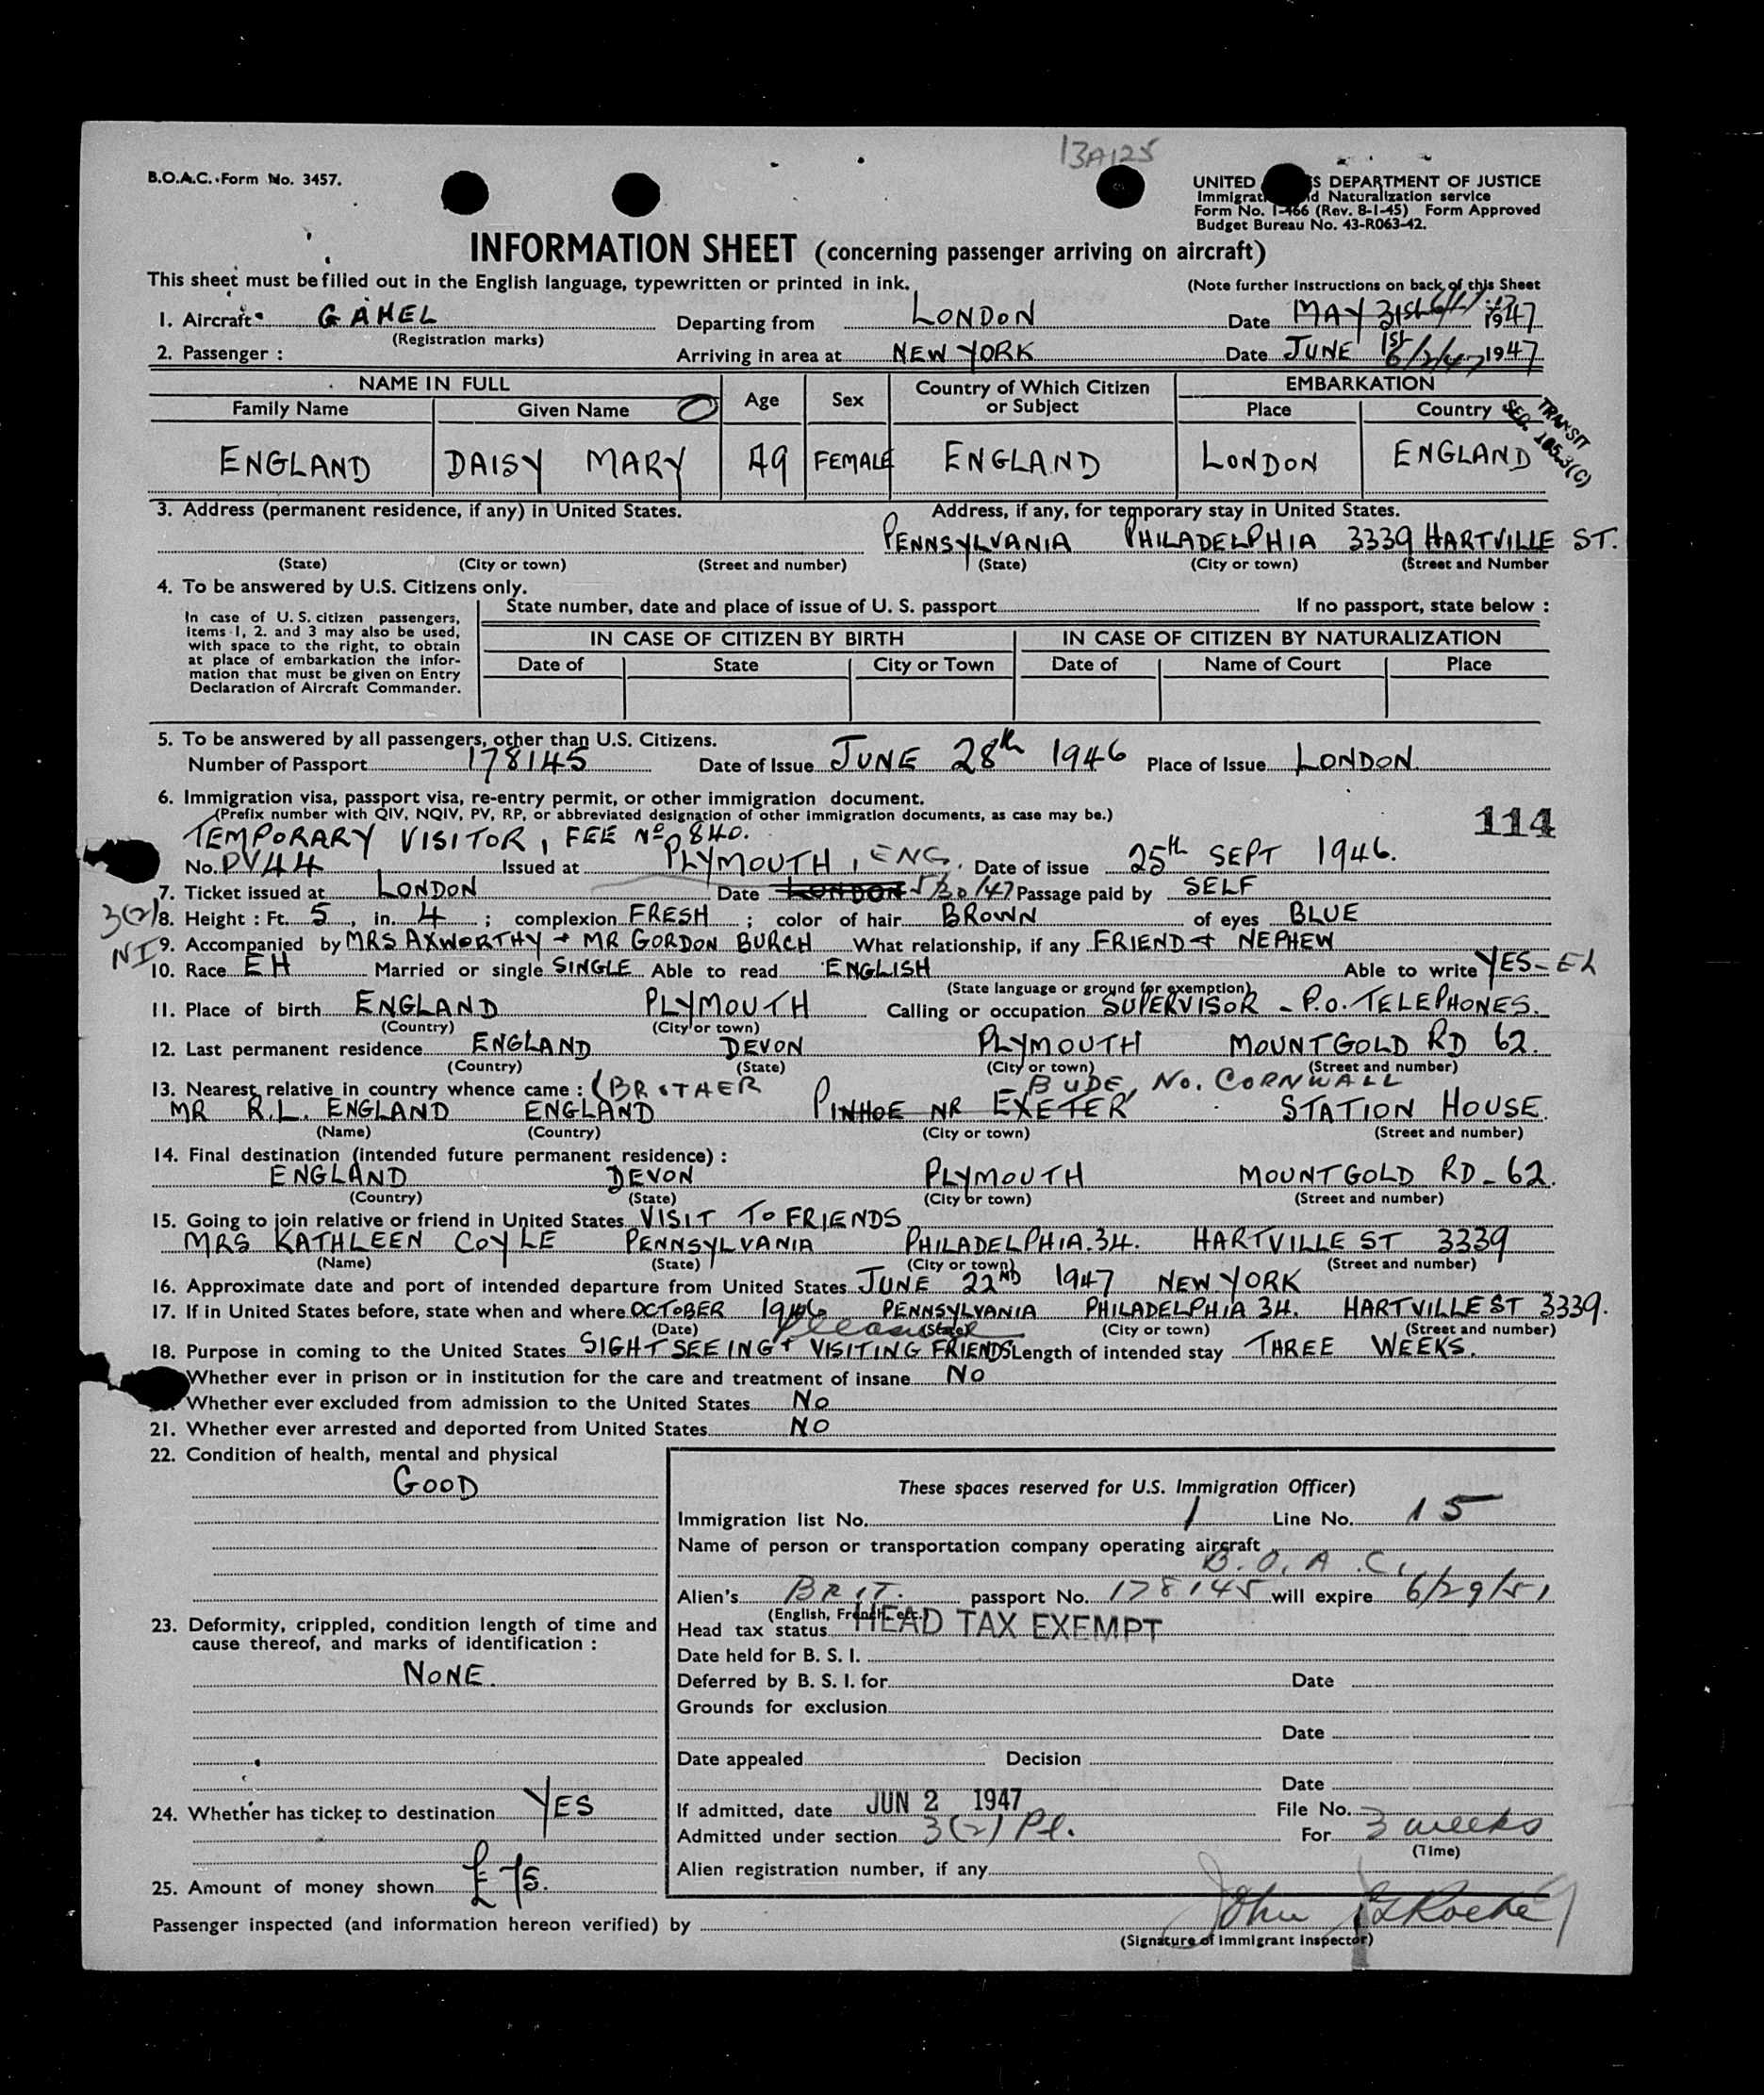 13A125
B.O.A.C. Form No. 3457.
UNITED S DEPARTMENT OF JUSTICE
Immigrat d Naturalization service
Form No. I-466 (Rev. 8-1-45) Form Approved
Budget Bureau No. 43-R063-42.
INFORMATION SHEET (concerning passenger arriving on aircraft)
This sheet must be filled out in the English language, typewritten or printed in ink. (Note further instructions on back of this Sheet
1. Aircraft GAHEL Departing from LONDON Date MAY 31st 1947
(Registration marks)
2. Passenger : Arriving in area at NEW YORK Date JUNE 1st 6/2/47 1947
NAME IN FULL Age Sex Country of Which Citizen or Subject EMBARKATION
Family Name Given Name Place Country
TRANSIT
SEC. 165.3(C)
ENGLAND DAISY MARY 49 FEMALE ENGLAND LONDON ENGLAND
3. Address (permanent residence, if any) in United States. Address, if any, for temporary stay in United States.
PENNSYLVANIA PHILADELPHIA 3339 HARTVILLE ST.
(State) (City or town) (Street and number) (State) (City or town) (Street and Number
4. To be answered by U.S. Citizens only.
In case of U.S. citizen passengers, items 1, 2. and 3 may also be used, with space to the right, to obtain at place of embarkation the information that must be given on Entry Declaration of Aircraft Commander.
State number, date and place of issue of U. S. passport If no passport, state below :
IN CASE OF CITIZEN BY BIRTH IN CASE OF CITIZEN BY NATURALIZATION
Date of State City or Town Date of Name of Court Place
5. To be answered by all passengers, other than U.S. Citizens.
Number of Passport 178145 Date of Issue JUNE 28th 1946 Place of Issue LONDON
6. Immigration visa, passport visa, re-entry permit, or other immigration document.
(Prefix number with QIV, NQIV, PV, RP, or abbreviated designation of other immigration documents, as case may be.)
114
TEMPORARY VISITOR, FEE No 840.
No. PV44 Issued at PLYMOUTH, ENG. Date of issue 25th SEPT 1946.
7. Ticket issued at LONDON Date LONDON 5/30/47 Passage paid by SELF
3(2) 8. Height : Ft. 5, in. 4 ; complexion FRESH ; color of hair BROWN of eyes BLUE
NI 9. Accompanied by MRS AXWORTHY + MR GORDON BURCH What relationship, if any FRIEND + NEPHEW
10. Race EH Married or single SINGLE Able to read ENGLISH Able to write YES-
(State language or ground for exemption)
11. Place of birth ENGLAND PLYMOUTH Calling or occupation SUPERVISOR - P.O. TELEPHONES.
(Country) (City or town)
12. Last permanent residence ENGLAND DEVON PLYMOUTH MOUNTGOLD RD 62.
(Country) (State) (City or town) (Street and number)
13. Nearest relative in country whence came : (BROTHER BUDE, No. CORNWALL
MR R.L. ENGLAND ENGLAND PINHOE NR EXETER STATION HOUSE.
(Name) (Country) (City or town) (Street and number)
14. Final destination (intended future permanent residence) :
ENGLAND DEVON PLYMOUTH MOUNTGOLD RD - 62.
(Country) (State) (City or town) (Street and number)
15. Going to join relative or friend in United States VISIT TO FRIENDS
MRS KATHLEEN COYLE PENNSYLVANIA PHILADELPHIA.34. HARTVILLE ST 3339
(Name) (State) (City or town) (Street and number)
16. Approximate date and port of intended departure from United States JUNE 22ND 1947 NEW YORK
17. If in United States before, state when and where OCTOBER 1946 PENNSYLVANIA PHILADELPHIA 34. HARTVILLE ST 3339.
(Date) (State) (City or town) (Street and number)
pleasure
18. Purpose in coming to the United States SIGHTSEEING + VISITING FRIENDS Length of intended stay THREE WEEKS.
Whether ever in prison or in institution for the care and treatment of insane NO
Whether ever excluded from admission to the United States NO
21. Whether ever arrested and deported from United States NO
22. Condition of health, mental and physical
GOOD
23. Deformity, crippled, condition length of time and cause thereof, and marks of identification :
NONE.
24. Whether has ticket to destination YES
25. Amount of money shown £ 75.
These spaces reserved for U.S. Immigration Officer)
Immigration list No. 1 Line No. 15
Name of person or transportation company operating aircraft
B.O.A.C.
Alien's BRIT. passport No. 178145 will expire 6/29/51
(English, French, etc.)
Head tax status HEAD TAX EXEMPT
Date held for B. S. I.
Deferred by B. S. I. for Date
Grounds for exclusion
Date
Date appealed Decision
Date
If admitted, date JUN 2 1947 File No.
Admitted under section 3(2) Pl. For 3 weeks
(Time)
Alien registration number, if any
Passenger inspected (and information hereon verified) by John
(Signature of Immigrant Inspector)